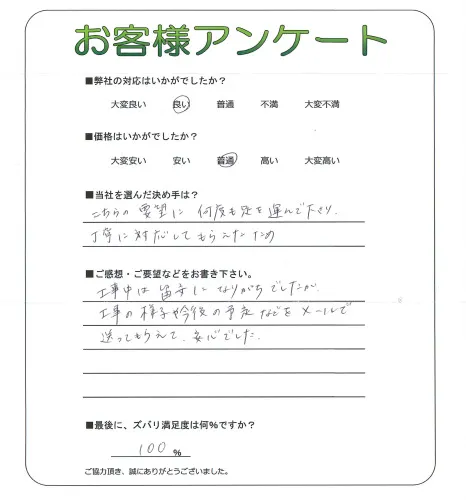 お客様アンケート
■弊社の対応はいかがでしたか?
大変良い 良い 普通 不満 大変不満
■価格はいかがでしたか?
大変安い 安い 普通 高い 大変高い
■当社を選んだ決め手は?
こちらの要望に何度も足を運んで下さり、
丁寧に対応してもらえたため
■ご感想・ご要望などをお書き下さい。
工事中は留守になりがちでしたが、
工事の様子や今後の予定などをメールで
送ってもらえて、安心でした。
■最後に、ズバリ満足度は何%ですか?
100 %
ご協力頂き、誠にありがとうございました。